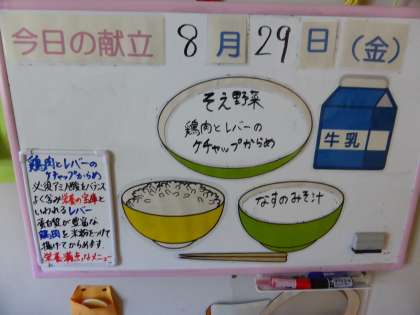 今日の献立 8月29日(金)
そえ野菜
鶏肉とレバーの
ケチャップからめ
牛乳
なすのみそ汁
鶏肉とレバーの
ケチャップからめ
必須アミノ酸をバランス
よく含み栄養の宝庫と
いわれるレバー
蛋白質が豊富な
鶏肉を米粉をつけて
揚げてからめます。
栄養満点なメニュー